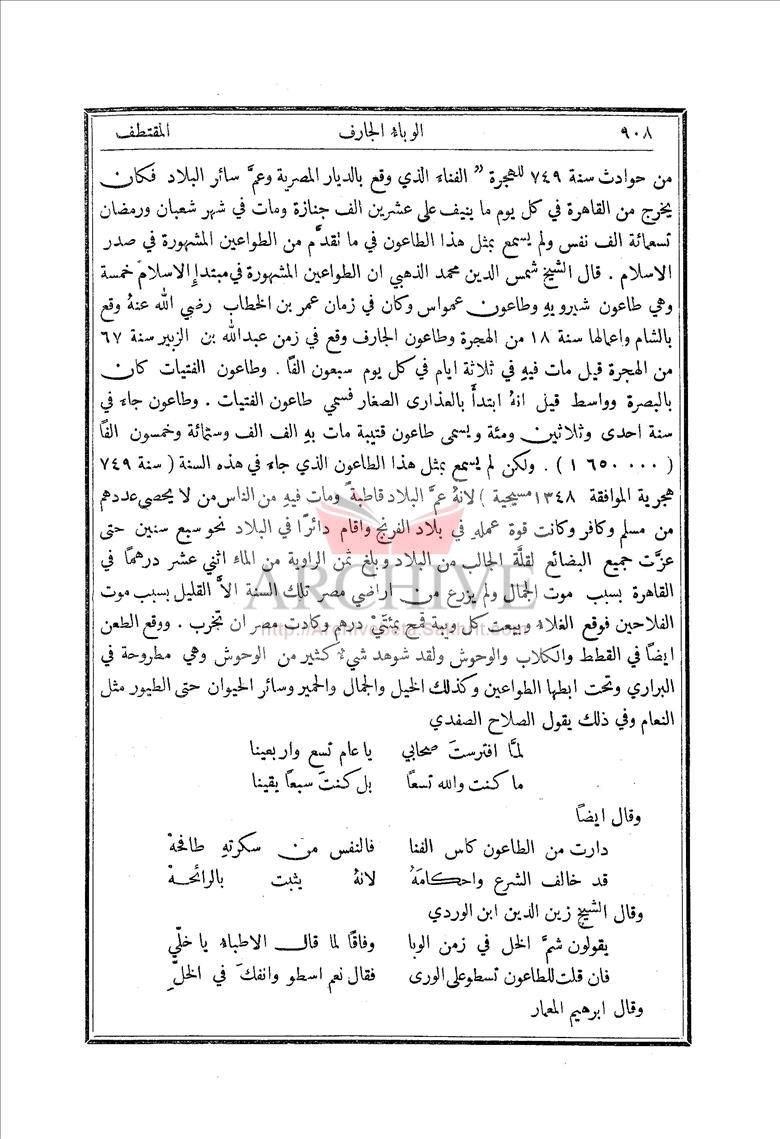 ٩٠٨ الوباء الجارف المقتطف
من حوادث سنة ٧٤٩ للهجرة " الفناء الذي وقع بالديار المصرية وعمَّ سائر البلاد فكان
يخرج من القاهرة في كل يوم ما ينيف على عشرين الف جنازة ومات في شهر شعبان ورمضان
تسعمائة الف نفس ولم يسمع بمثل هذا الطاعون في ما تقدَّم من الطواعين المشهورة في صدر
الاسلام . قال الشيخ شمس الدين محمد الذهبي ان الطواعين المشهورة في مبتدإِ الاسلام خمسة
وهي طاعون شيرويهِ وطاعون عمواس وكان في زمان عمر بن الخطاب رضي الله عنهُ وقع
بالشام واعمالها سنة ١٨ من الهجرة وطاعون الجارف وقع في زمن عبدالله بن الزبير سنة ٦٧
من الهجرة قيل مات فيهِ في ثلاثة ايام في كل يوم سبعون الفًا . وطاعون الفتيات كان
بالبصرة وواسط قيل انهُ ابتدأَ بالعذارى الصغار فسمي طاعون الفتيات . وطاعون جاء في
سنة احدى وثلاثين ومئة ويسمى طاعون قتيبة مات بهِ الف الف وستمائة وخمسون الفًا
( ١ ٦٥٠ ٠٠٠ ) . ولكن لم يسمع بمثل هذا الطاعون الذي جاء في هذه السنة ( سنة ٧٤٩
هجرية الموافقة ١٣٤٨ مسيحية ) لانهُ عمَّ البلاد قاطبةً ومات فيهِ من الناس من لا يحصى عددهم
من مسلم وكافر وكانت قوة عملهِ في بلاد الفرنج واقام دائرًا في البلاد نحو سبع سنين حتى
عزَّت جميع البضائع لقلَّة الجالب من البلاد وبلغ ثمن الراوية من الماء اثني عشر درهمًا في
القاهرة بسبب موت الجمال ولم يزرع من اراضي مصر تلك السنة الاَّ القليل بسبب موت
الفلاحين فوقع الغلاء وبيعت كل ويبة قمح بمئتَيْ درهم وكادت مصر ان تخرب . ووقع الطعن
ايضًا في القطط والكلاب والوحوش ولقد شوهد شيءٌ كثير من الوحوش وهي مطروحة في
البراري وتحت ابطها الطواعين وكذلك الخيل والجمال والحمير وسائر الحيوان حتى الطيور مثل
النعام وفي ذلك يقول الصلاح الصفدي
لمَّا افترستَ صحابي يا عام تسع واربعينا
ما كنت والله تسعًا بل كنتَ سبعًا يقينا
وقال ايضًا
دارت من الطاعون كاس الفنا فالنفس من سكرتهِ طافحهْ
قد خالف الشرع واحكامهُ لانهُ يثبت بالرائحهْ
وقال الشيخ زين الدين ابن الوردي
يقولون شمَّ الخل في زمن الوبا وفاقًا لما قال الاطباء يا خلّي
فان قلت للطاعون تسطو على الورى فقال نعم اسطو وانفكَ في الخلِّ
وقال ابرهيم المعمار
ARCHIVE